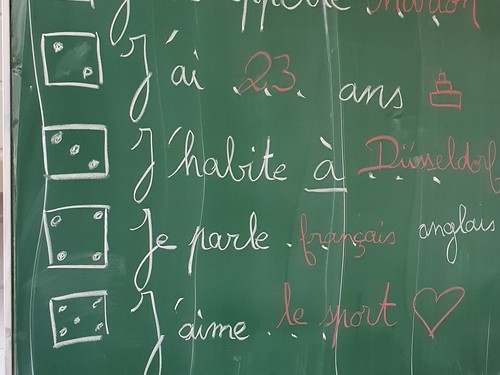 J'ai 23 ans
J'habite à Düsseldorf
Je parle français anglais
J'aime le sport